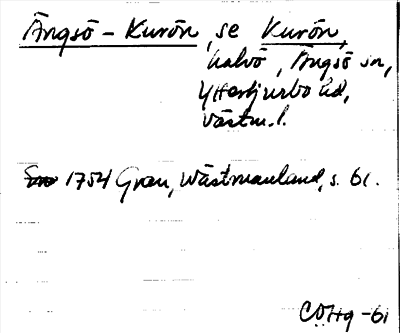 Ängsö - Kurön, se Kurön,
halvö, Ängsö sn,
Yttertjurbo hd,
Västm. l.
1754 Grau, Wästmanland, s. 61.
CÖHg -61